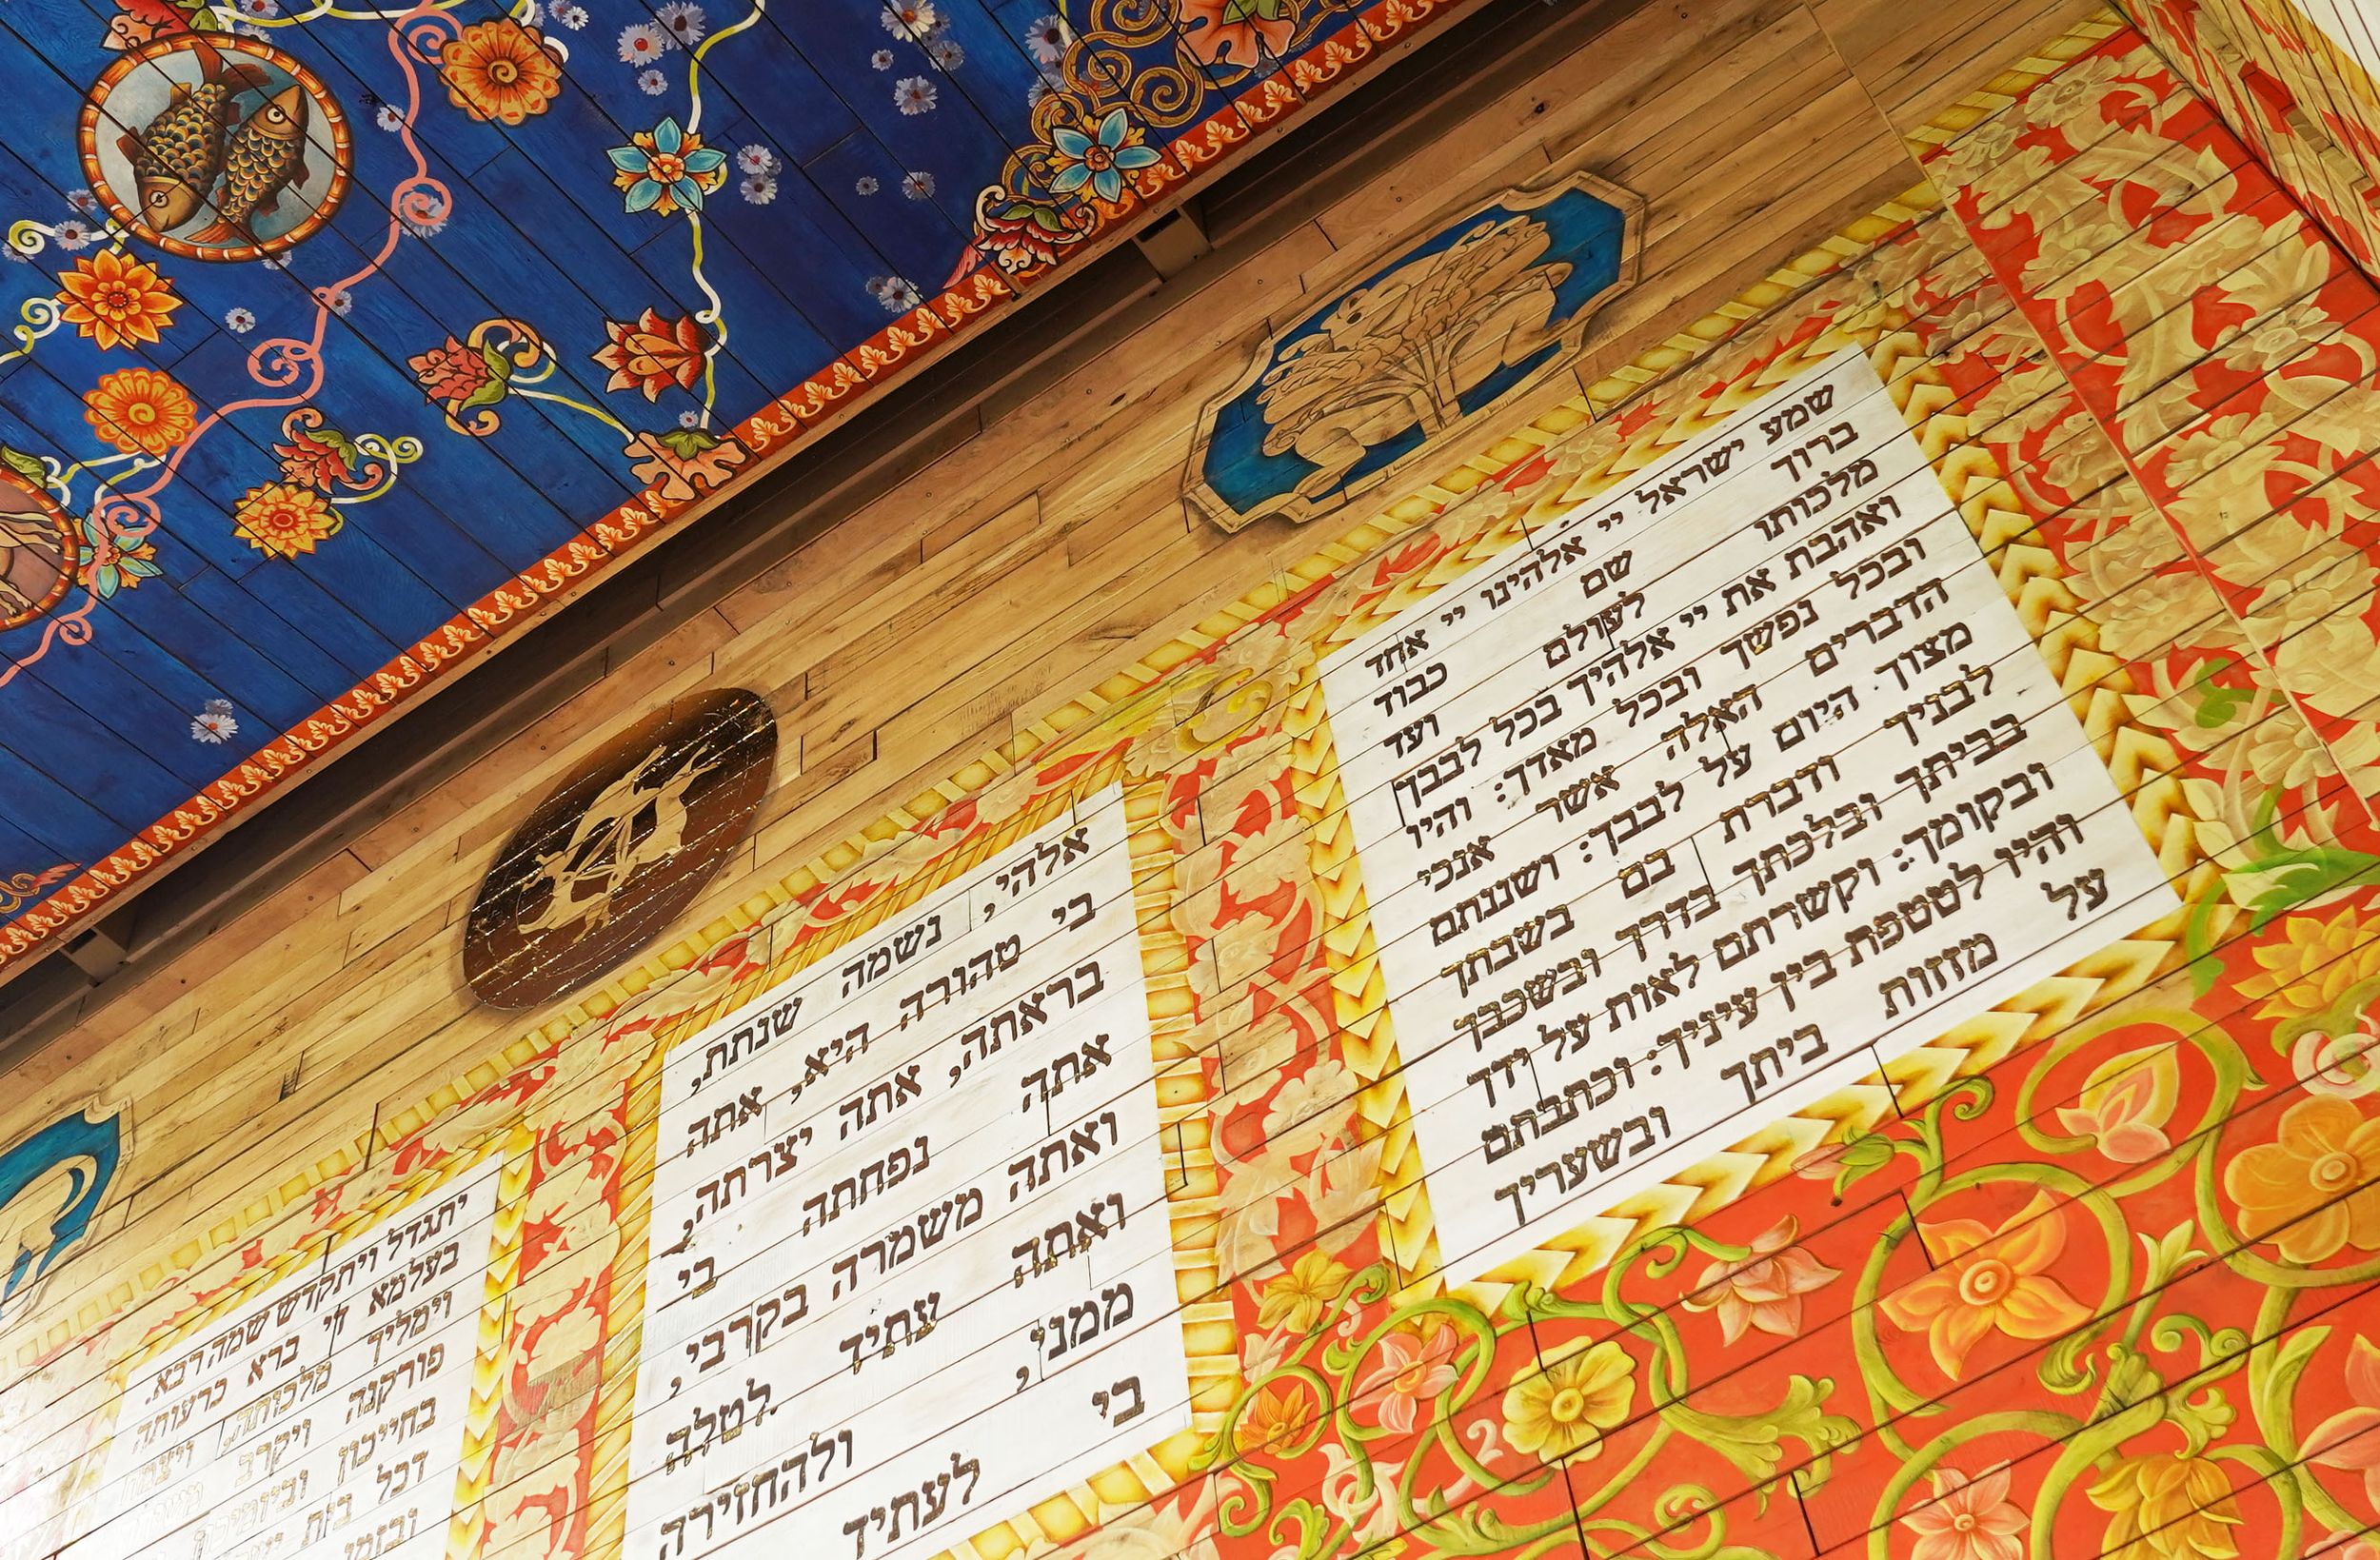 שמע ישראל יי אלהינו יי אחד
ברוך שם כבוד
מלכותו לעולם ועד
ואהבת את יי אלהיך בכל לבבך
ובכל נפשך ובכל מאדך: והיו
הדברים האלה אשר אנכי
מצוך היום על לבבך: ושננתם
לבניך ודברת בם בשבתך
בביתך ובלכתך בדרך ובשכבך
ובקומך: וקשרתם לאות על ידך
והיו לטטפת בין עיניך: וכתבתם
על מזזות ביתך ובשעריך
אלהי, נשמה שנתת,
בי טהורה היא, אתה
בראתה, אתה יצרתה,
אתה נפחתה בי
ואתה משמרה בקרבי,
ואתה עתיד לטלה
ממני, ולהחזירה
בי לעתיד
יתגדל ויתקדש שמה רבא.
בעלמא די ברא כרעותה
וימליך מלכותה, ויצמח
פורקנה ויקרב
בחייכון וביומיכון
דכל בית